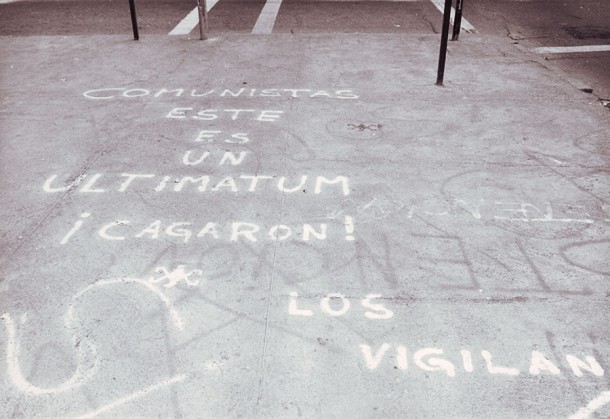 COMUNISTAS
ESTE
ES
UN
ULTIMATUM
¡CAGARON!
LOS
VIGILAN